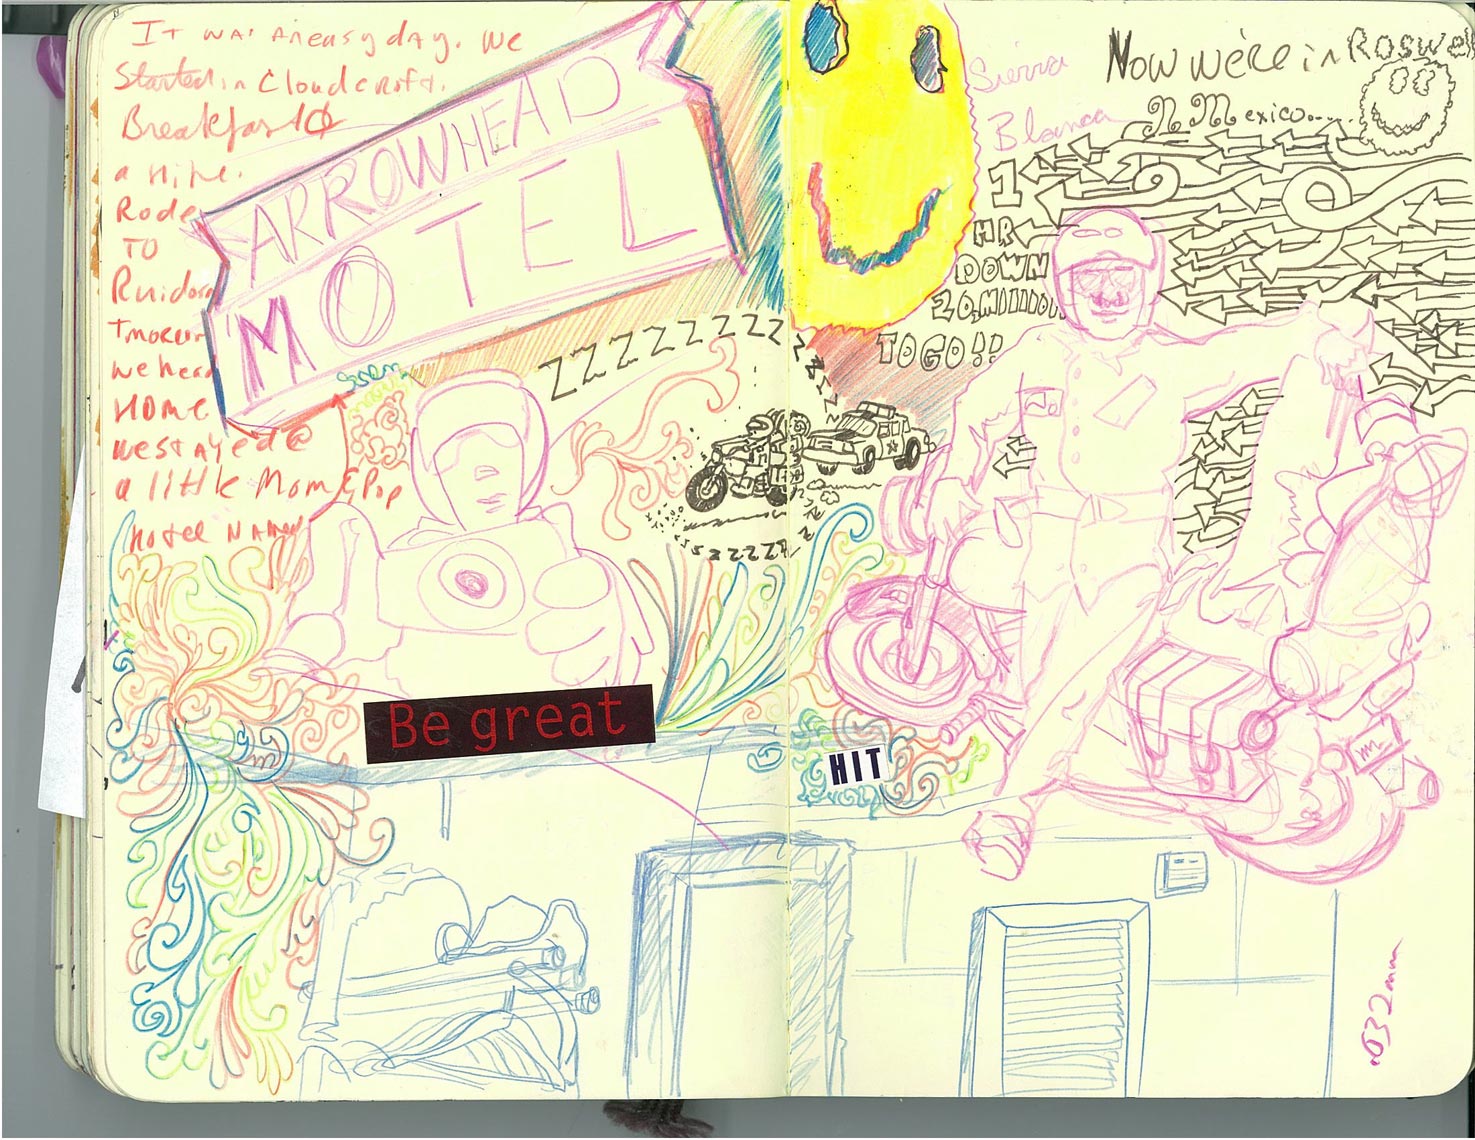 It was an easy day. We
started in Cloudcroft.
Breakfast &
a hike.
Rode
TO
Ruidoso
Tmorrow
we head
HOME
we stayed @
a little Mom & Pop
hotel NAMED
ARROWHEAD
MOTEL
ZZZZZZZZ
Be great
HIT
Sierra
Blanca
Now we're in Roswell
N Mexico....
1
HR
DOWN
20,MIllION
TO GO!!
.032mm